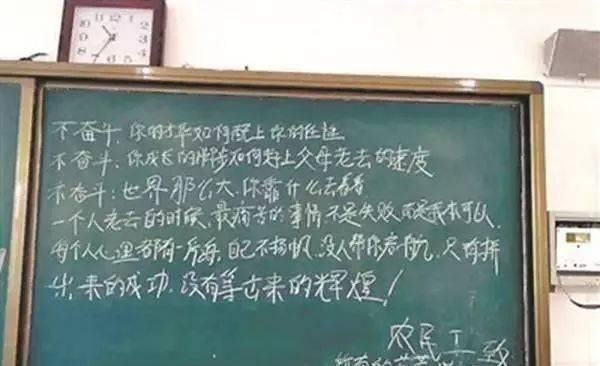 不奋斗,你的才华如何配上你的任性
不奋斗,你成长的脚步如何赶上父母老去的速度
不奋斗:世界那么大,你靠什么去看看
一个人老去的时候,最痛苦的事情不是失败,而是我本可以,
每个人心里都有一片海,自己不扬帆,没人帮你启航,只有拼
出来的成功,没有等出来的辉煌!
农民工 致
所有的